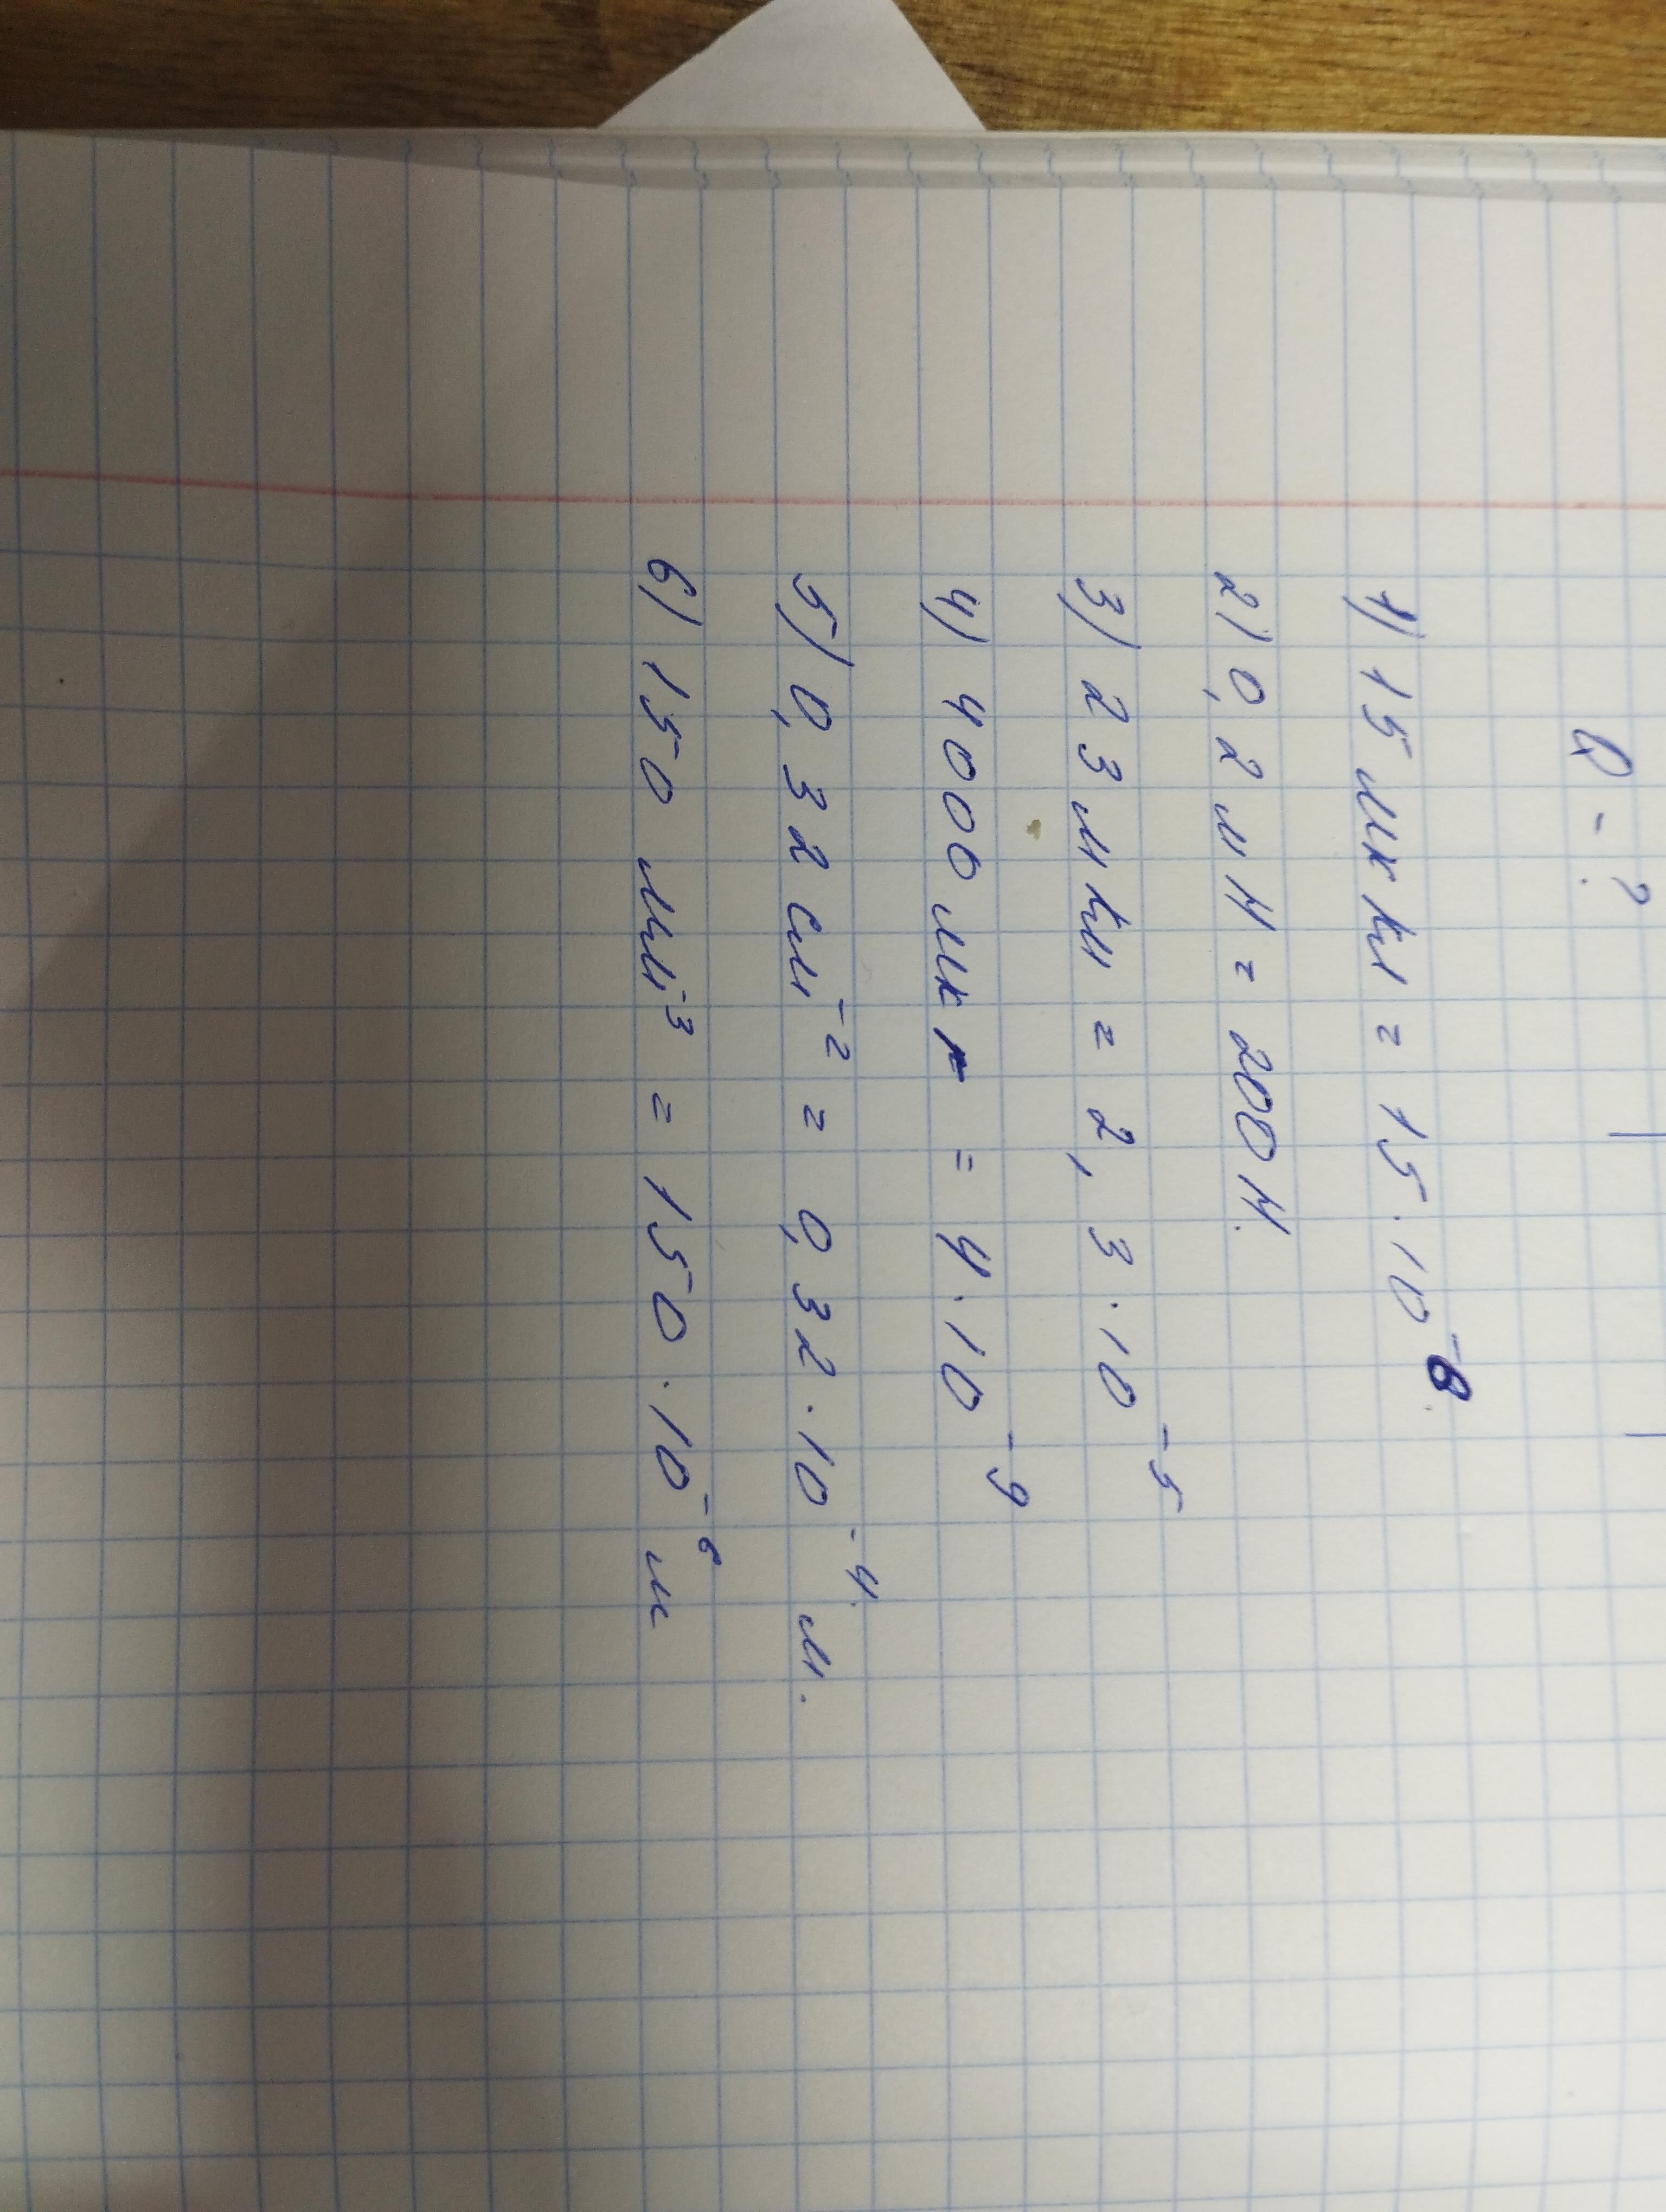 Q - ?
1) 15 мк Кл = 15 · 10⁻⁸.
2) 0,2 м Н = 200 Н.
3) 23 м Кл = 2,3 · 10⁻⁵
4) 4000 мк г = 4 · 10⁻⁹
5) 0,32 см⁻² = 0,32 · 10⁻⁴ м.
6) 150 мм⁻³ = 150 · 10⁻⁶ м